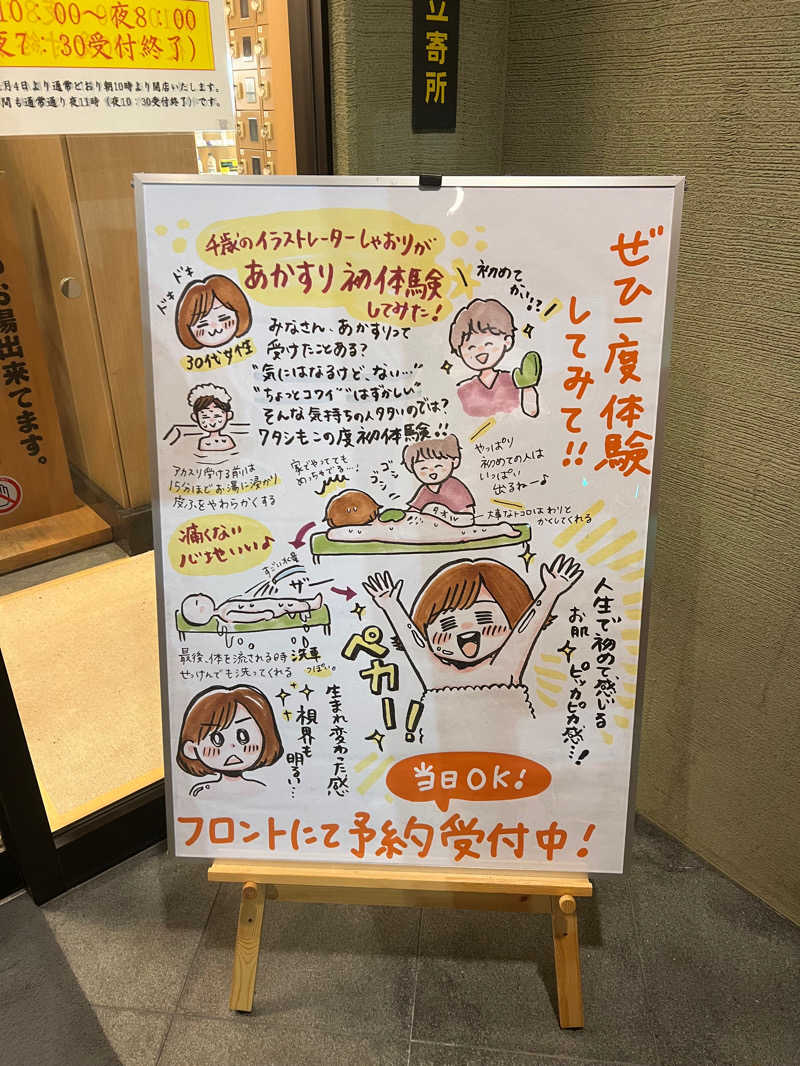 10:00～夜8:00
夜7:30受付終了)
月4日より通常どおり朝10時より開店いたします。
間も通常通り夜11時（夜10:30受付終了）です。
立寄所
お湯出来てます。
千歳のイラストレーターしゃおりが
あかすり初体験
してみた!
ドキ
ドキ
30代女性
みなさん、あかすりって
受けたことある?
"気にはなるけど、ない…"
"ちょっとコワイ""はずかしい"
そんな気持ちの人タタいのでは?
ワタシもこの度初体験!!
初めて
かい!?
ぜひ一度体験
してみて!!
アカスリ受ける前は
15分ほどお湯に浸かり
皮ふをやわらかくする
家でやってても
めっちゃでる…!
ゴシ
ゴシ
やっぱり
初めての人は
いっぱい
出るねー♪
タオル
大事なトコロはわりと
かくしてくれる
痛くない
心地いい♪
すごい水量
ザー
最後、体を流される時洗車っぽい。
せっけんでも洗ってくれる
ペカー!
人生で初めて感じる
お肌ピッカピカ感…!
生まれ変わった感
視界も
明るい…
当日OK!
フロントにて予約受付中!